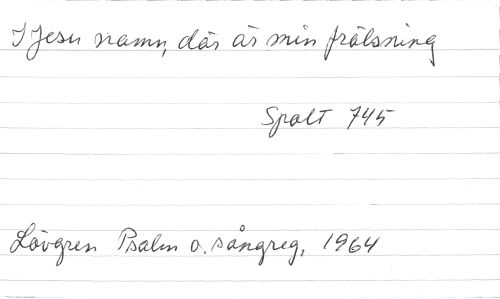 I Jesu namn, där är min frälsning
Spalt 745
Lövgren Psalm o. sångreg, 1964